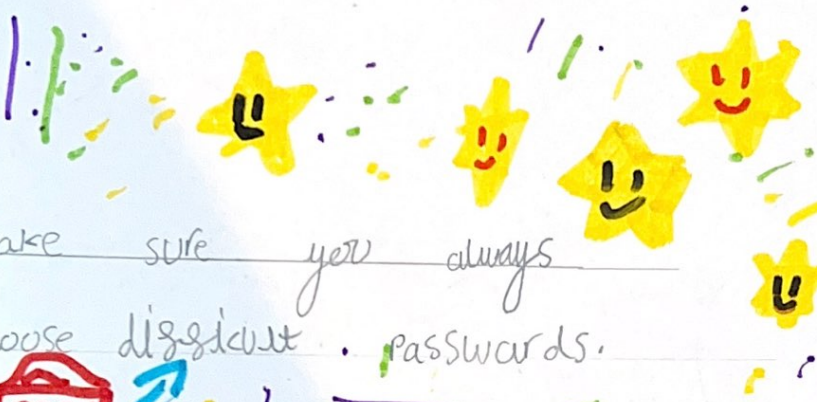 ake sure you always
oose difficult . passwards.